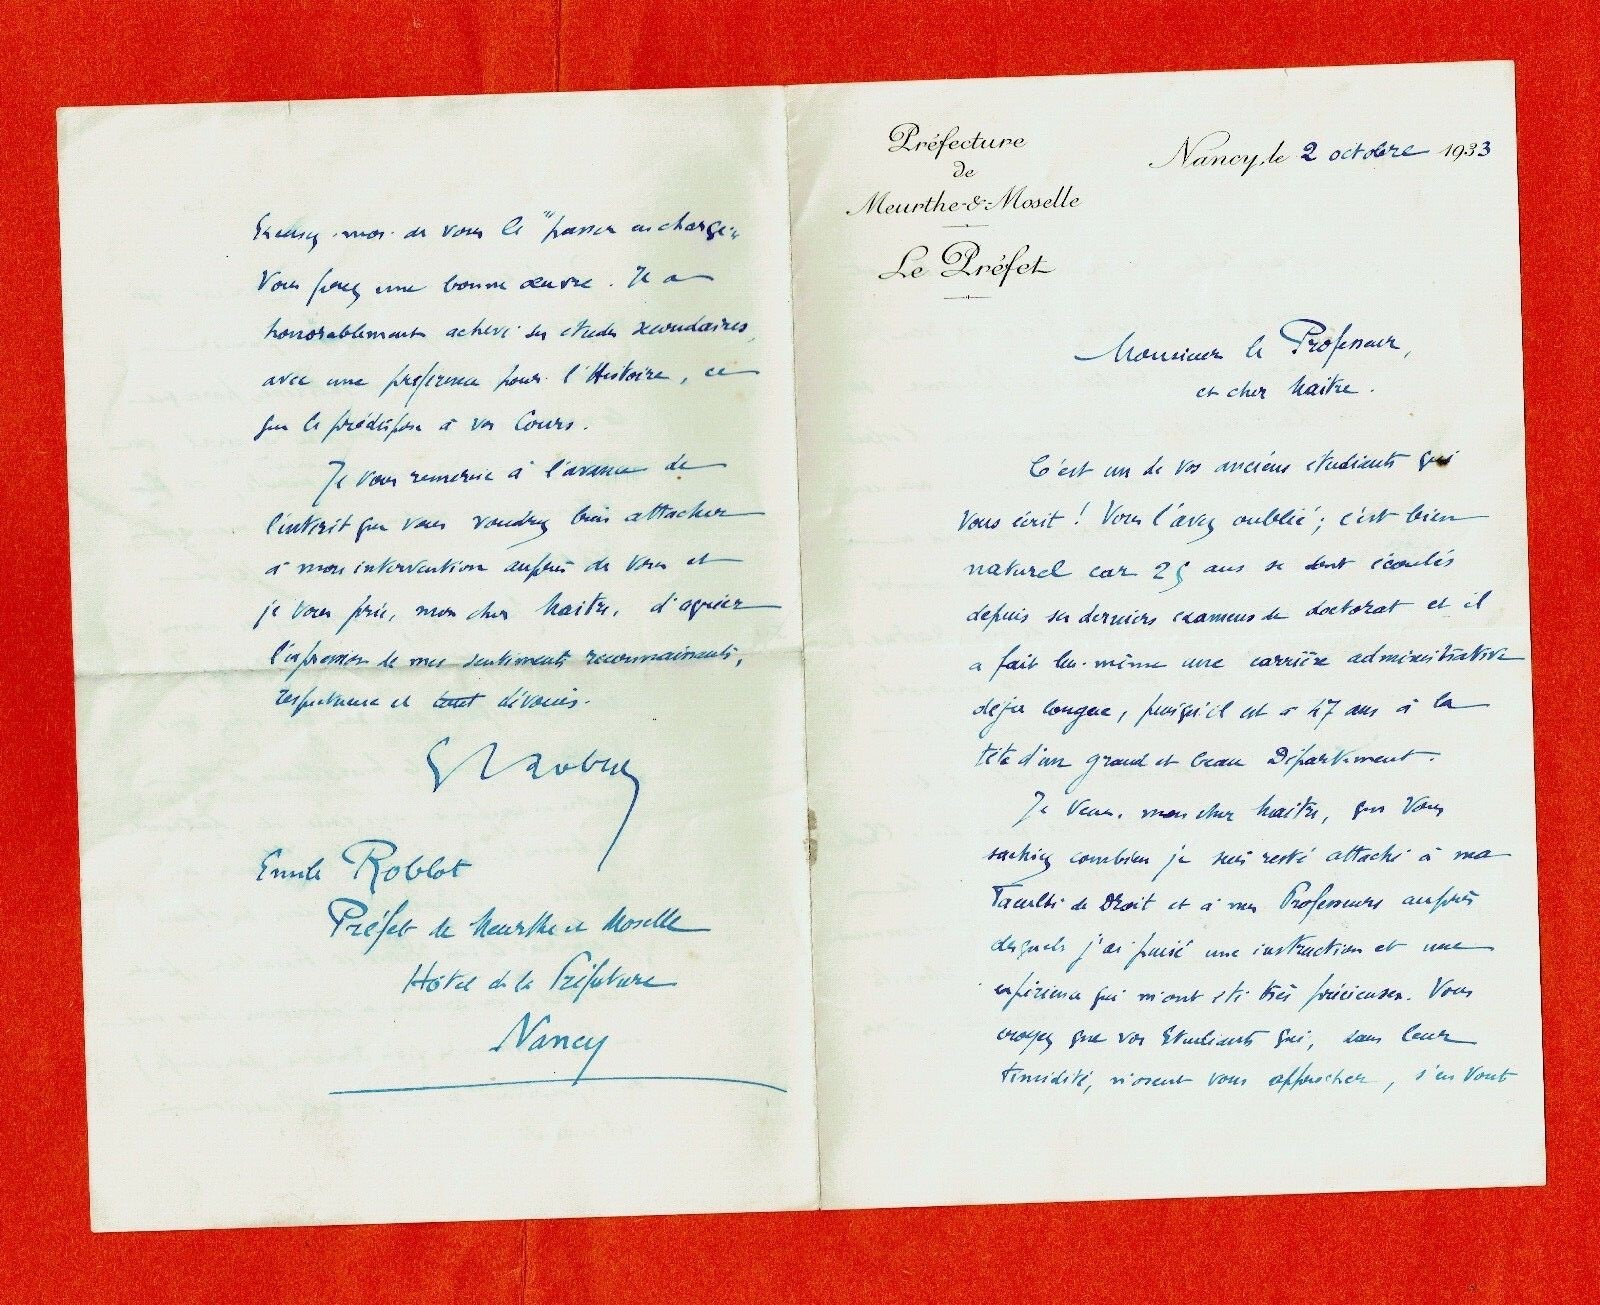 Préfecture
de
Meurthe-&-Moselle
Le Préfet
Nancy, le 2 octobre 1933
Monsieur le Professeur,
et cher Maître.
C'est un de vos anciens étudiants qui
vous écrit ! Vous l'avez oublié ; c'est bien
naturel car 25 ans se sont écoulés
depuis ses derniers examens de doctorat et il
a fait lui-même une carrière administrative
déjà longue, puisqu'il est à 47 ans à la
tête d'un grand et beau Département.
Je veux, mon cher Maître, que vous
sachiez combien je suis resté attaché à ma
Faculté de Droit et à mes Professeurs auprès
desquels j'ai puisé une instruction et une
expérience qui m'ont été très précieuses. Vous
croyez que vos Etudiants qui, dans leur
timidité, n'osent vous approcher, s'en vont
Excusez-moi de vous le "passer en charge".
Vous ferez une bonne œuvre. Il a
honorablement achevé ses études secondaires,
avec une préférence pour l'Histoire, ce
qui le prédispose à vos Cours.
Je vous remercie à l'avance de
l'intérêt que vous voudrez bien attacher
à mon intervention auprès de vous et
je vous prie, mon cher Maître, d'agréer
l'expression de mes sentiments reconnaissants,
respectueux et tout dévoués.
Emile Roblot
Préfet de Meurthe et Moselle
Hôtel de la Préfecture
Nancy